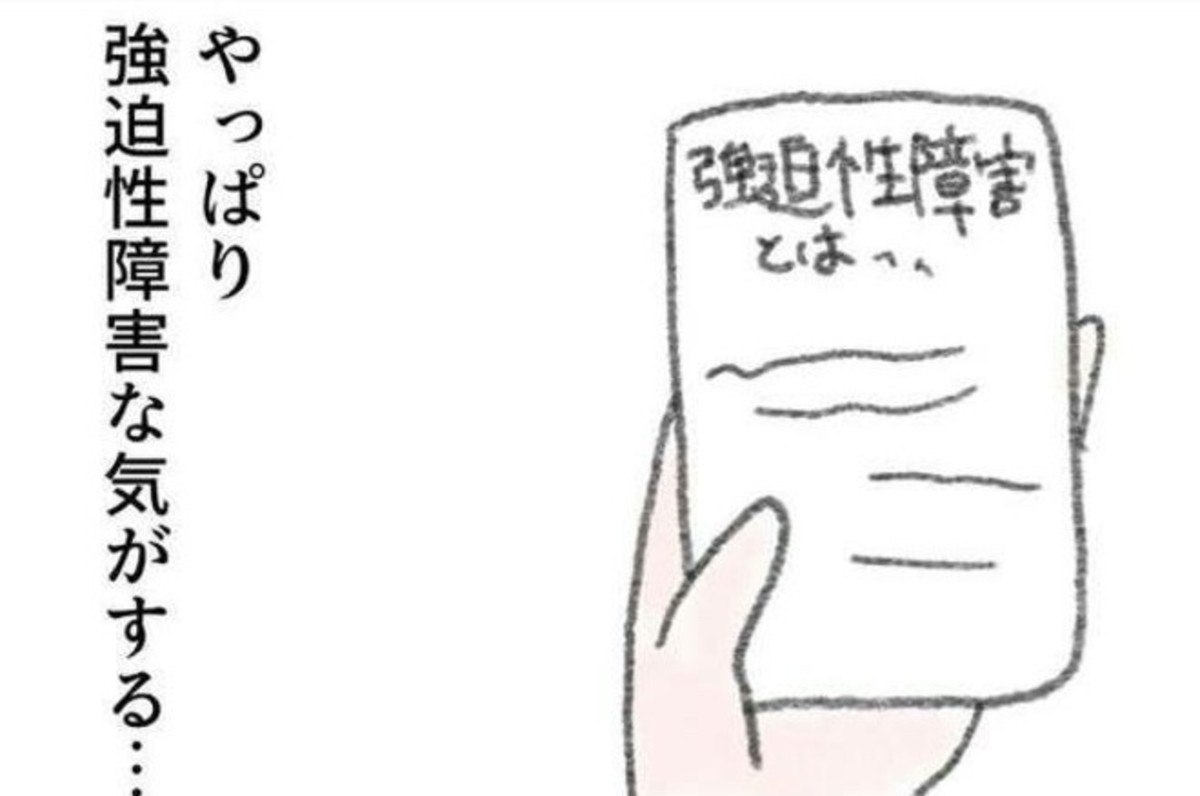 やっぱり
強迫性障害な気がする…
強迫性障害
とは…